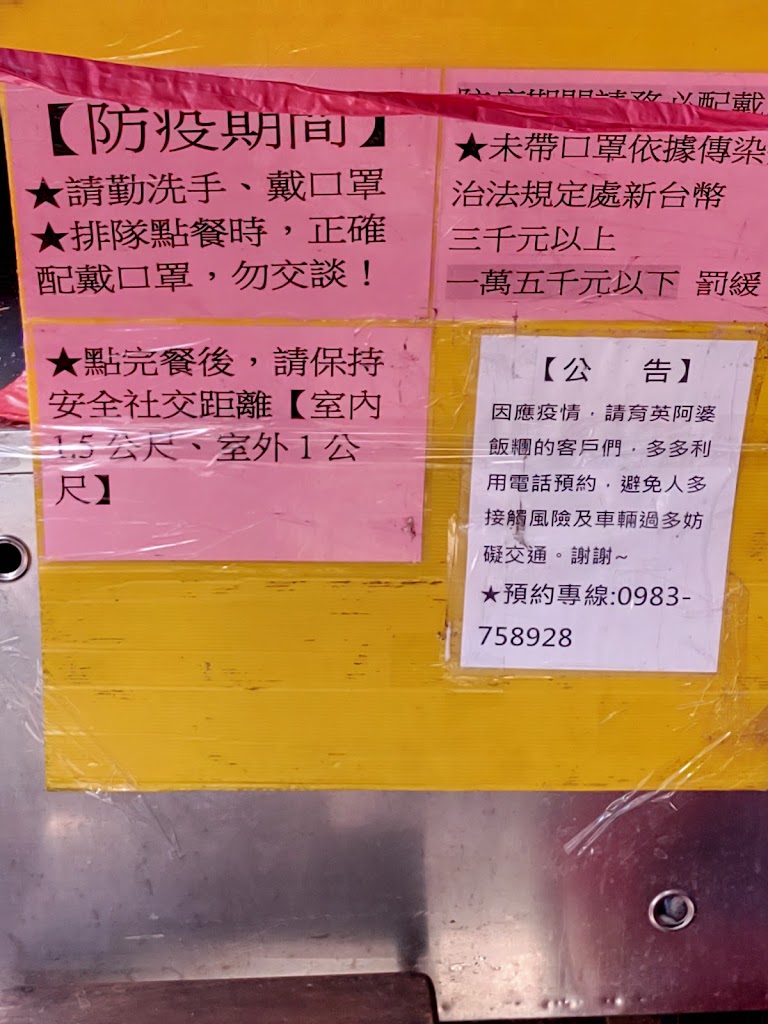 【防疫期間】
★請勤洗手、戴口罩
★排隊點餐時，正確
配戴口罩，勿交談！
防疫期間請務必配戴
★未帶口罩依據傳染
治法規定處新台幣
三千元以上
一萬五千元以下 罰緩
★點完餐後，請保持
安全社交距離【室內
1.5公尺、室外1公
尺】
【公 告】
因應疫情，請育英阿婆
飯糰的客戶們，多多利
用電話預約，避免人多
接觸風險及車輛過多妨
礙交通。謝謝~
★預約專線:0983-
758928